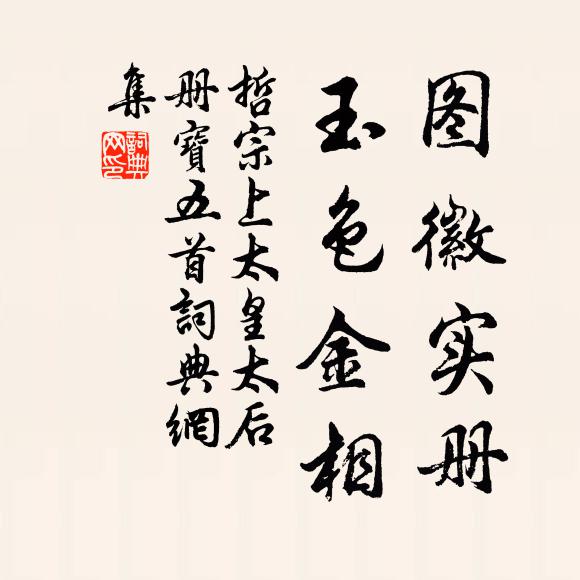 图徽实册
玉色金相
哲宗上太皇太后
册寳五首詞典網
集
詞典
网印